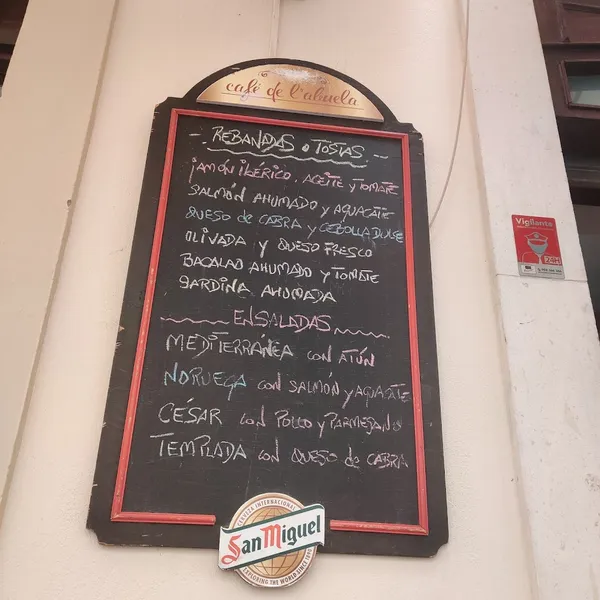 café de l'abuela
- REBANADAS o TOSTAS -
JAMÓN IBÉRICO, ACEITE y TOMATE
SALMÓN AHUMADO y AGUACATE
QUESO de CABRA y CEBOLLA DULCE
OLIVADA y QUESO FRESCO
BACALAO AHUMADO y TOMATE
SARDINA AHUMADA
ENSALADAS
MEDITERRÁNEA CON ATÚN
NORUEGA con SALMÓN y AGUACATE
CÉSAR con POLLO y PARMESANO
TEMPLADA con QUESO de CABRA
CERVEZA INTERNACIONAL
San Miguel
EXPLORING THE WORLD SINCE 1890
Vigilante
24H